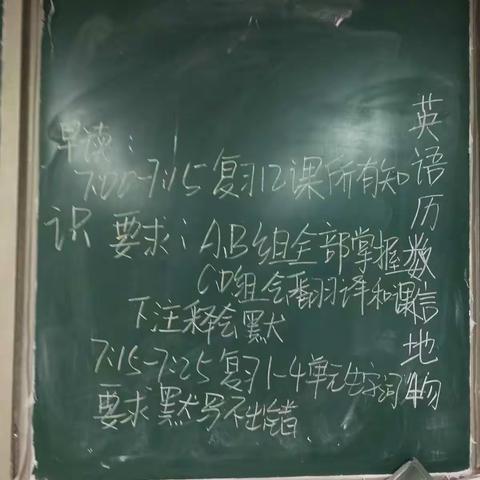 早读：
7:00-7:15复习12课所有知
识 要求：A,B组全部掌握
CD组会翻译和课
下注释会默
7:15-7:25复习1-4单元生字词
要求默写不出错
英语历数信地物